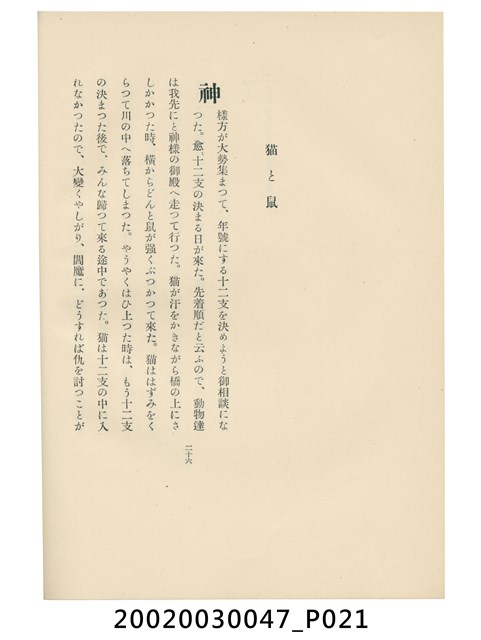 猫と鼠
神樣方が大勢集まつて、年號にする十二支を決めようと御相談にな
つた。愈〻十二支の決まる日が來た。先着順だと云ふので、動物達
は我先にと神樣の御殿へ走つて行つた。猫が汗をかきながら橋の上にさ
しかかつた時、橫からどんと鼠が强くぶつかつて來た。猫ははずみをく
らつて川の中へ落ちてしまつた。やうやくはひ上つた時は、もう十二支
の決まつた後で、みんな歸つて來る途中であつた。猫は十二支の中に入
れなかつたので、大變くやしがり、閻魔に、どうすれば仇を討つことが
二十六
20020030047_P021